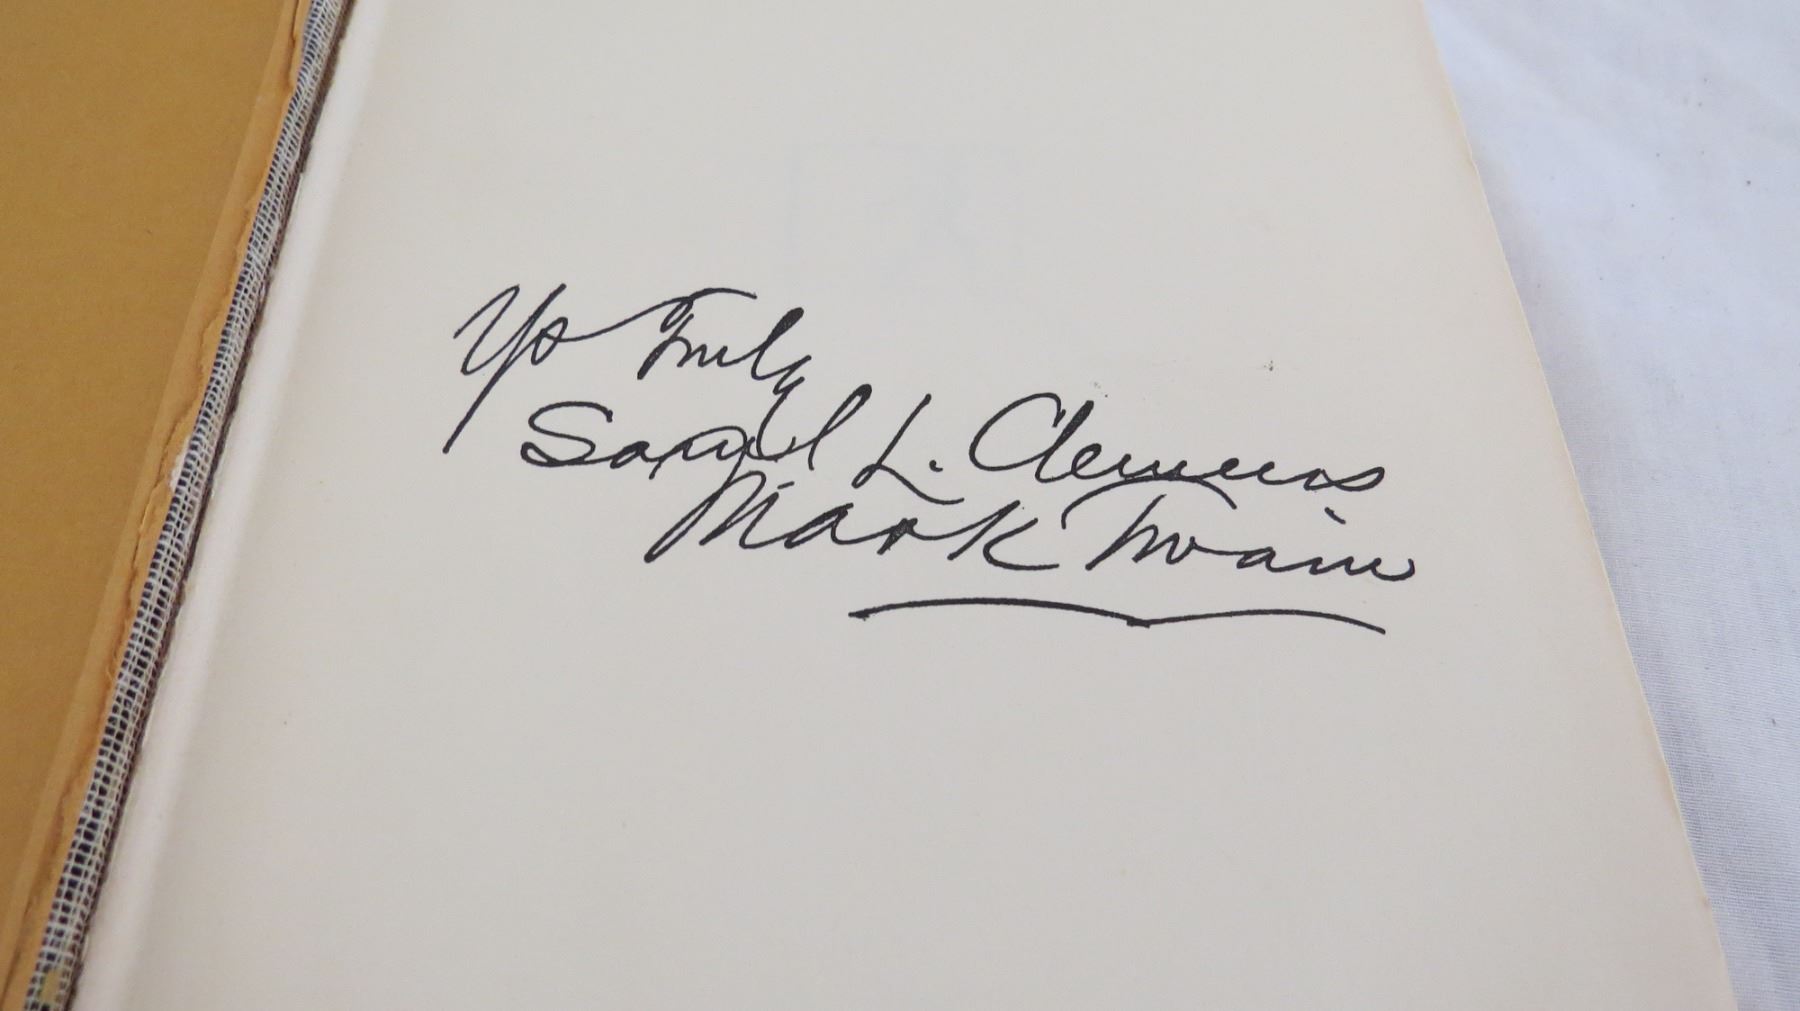 Yrs Truly
Saml L. Clemens
Mark Twain